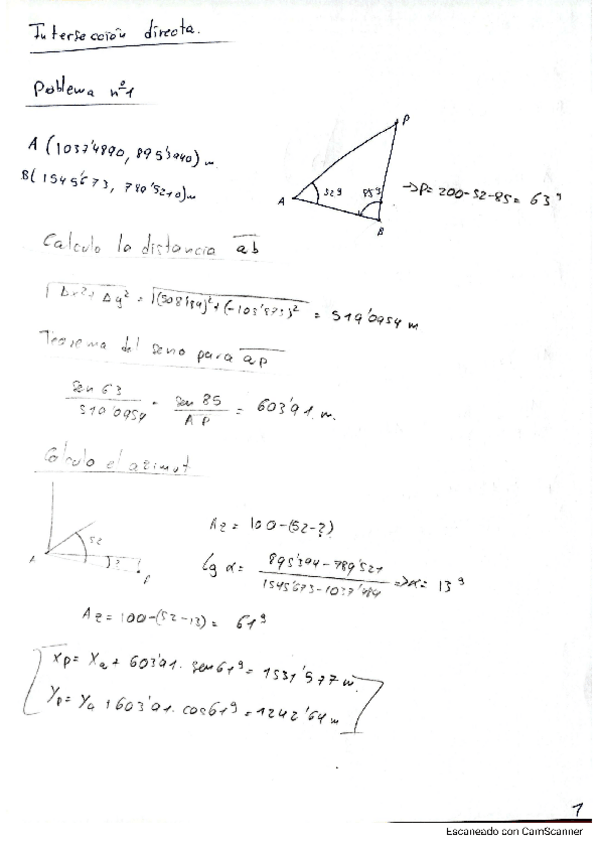 Intersección directa.
Problema nº1
A (1037'4890, 895'3940) m
B( 1545'673, 789'5210)m
P
A
B
52g
85g
→P= 200-52-85= 63 g
Calculo la distancia ab
√Δx²+Δy² = √(508'184)²+(-105'873)² = 519'0954 m
Teorema del seno para ap
sen 63 / 519'0954 = sen 85 / AP = 603'91 m.
Calculo el azimut
A
52
?
Az = 100-(52-?)
tg α = 895'394-789'521 / 1545'673-1037'489 ⇒ α= 13 g
Az = 100-(52-13) = 61 g
Xp = Xa + 603'91. sen 61 g = 1531'577 m
Yp = Ya + 603'91. cos 61 g = 1242'64 m
1
Escaneado con CamScanner